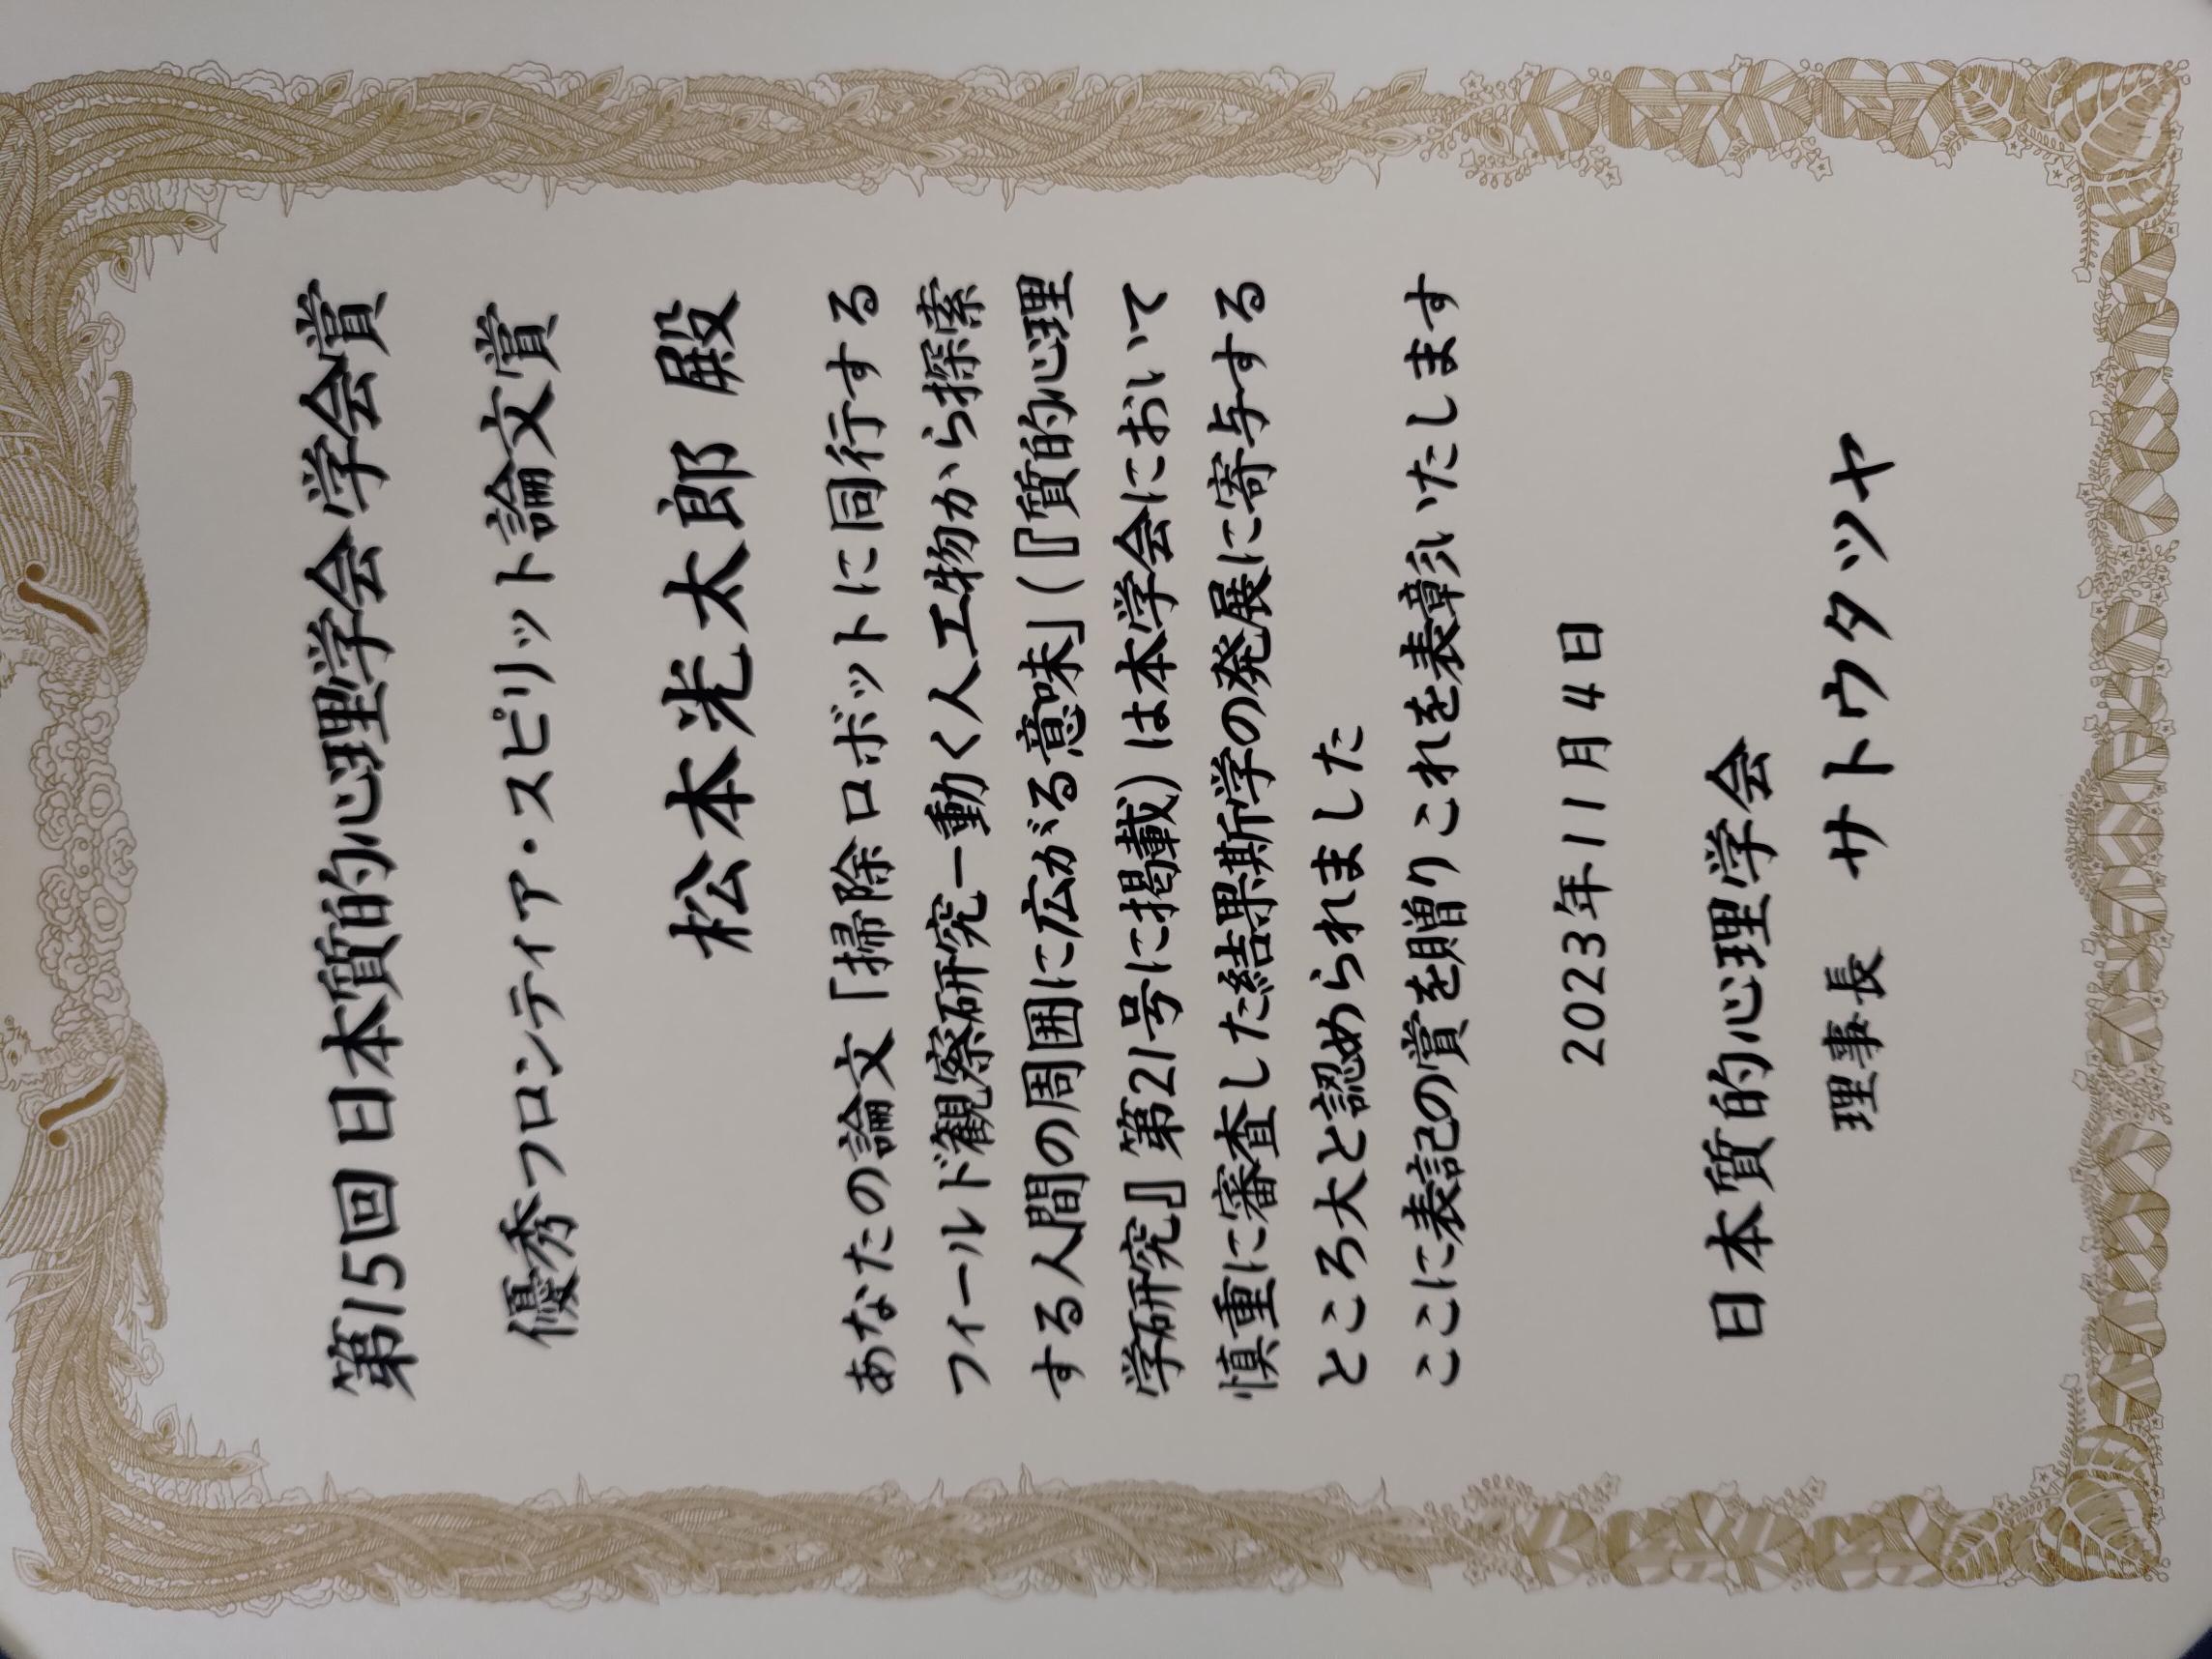 第15回 日本質的心理学会学会賞
優秀フロンティア・スピリット論文賞
松本光太郎 殿
あなたの論文「掃除ロボットに同行する
フィールド観察研究―動く人工物から探索
する人間の周囲に広がる意味」(『質的心理
学研究』第21号に掲載)は本学会において
慎重に審査した結果斯学の発展に寄与する
ところ大と認められました
ここに表記の賞を贈りこれを表彰いたします
2023年11月4日
日本質的心理学会
理事長 サトウタツヤ